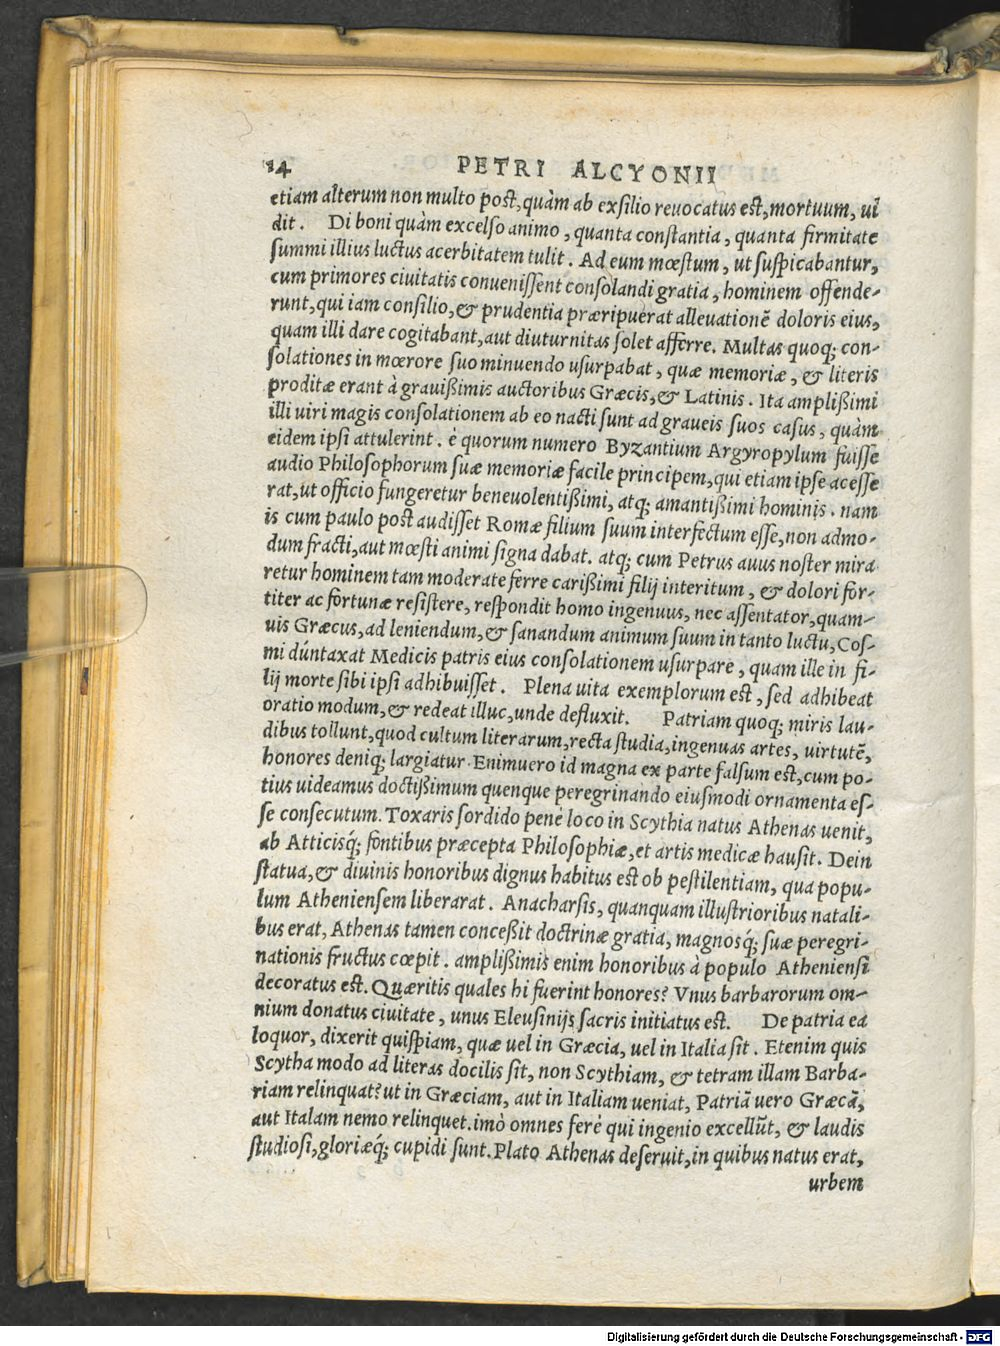 14 PETRI ALCYONII
etiam alterum non multo post, quàm ab exsilio reuocatus est, mortuum, ui
dit. Di boni quàm excelso animo, quanta constantia, quanta firmitate
summi illius luctus acerbitatem tulit. Ad eum mœstum, ut suspicabantur,
cum primores ciuitatis conuenissent consolandi gratia, hominem offende-
runt, qui iam consilio, & prudentia præripuerat alleuationē doloris eius,
quam illi dare cogitabant, aut diuturnitas solet afferre. Multas quoq; con-
solationes in mœrore suo minuendo usurpabat, quæ memoriæ, & literis
proditæ erant à grauißimis auctoribus Græcis, & Latinis. Ita amplißimi
illi uiri magis consolationem ab eo nacti sunt ad graueis suos casus, quàm
eidem ipsi attulerint. è quorum numero Byzantium Argyropylum fuisse
audio Philosophorum suæ memoriæ facile principem, qui etiam ipse acesse
rat, ut officio fungeretur beneuolentißimi, atq; amantißimi hominis. nam
is cum paulo post audisset Romæ filium suum interfectum esse, non admo-
dum fracti, aut mœsti animi signa dabat. atq; cum Petrus auus noster mira
retur hominem tam moderate ferre carißimi filij interitum, & dolori for-
titer ac fortunæ resistere, respondit homo ingenuus, nec assentator, quam-
uis Græcus, ad leniendum, & sanandum animum suum in tanto luctu, Cos-
mi dúntaxat Medicis patris eius consolationem usurpare, quam ille in fi-
lij morte sibi ipsi adhibuisset. Plena uita exemplorum est, sed adhibeat
oratio modum, & redeat illuc, unde defluxit. Patriam quoq; miris lau-
dibus tollunt, quod cultum literarum, recta studia, ingenuas artes, uirtutē,
honores deniq; largiatur. Enimuero id magna ex parte falsum est, cum po-
tius uideamus doctißimum quenque peregrinando eiusmodi ornamenta es-
se consecutum. Toxaris sordido penè loco in Scythia natus Athenas uenit,
ab Atticisq́; fontibus præcepta Philosophiæ, et artis medicæ hausit. Dein
statua, & diuinis honoribus dignus habitus est ob pestilentiam, qua popu-
lum Atheniensem liberarat. Anacharsis, quanquam illustrioribus natali-
bus erat, Athenas tamen conceßit doctrinæ gratia, magnosq́; suæ peregri-
nationis fructus cœpit. amplißimis enim honoribus à populo Atheniensi
decoratus est. Quæritis quales hi fuerint honores? Vnus barbarorum om-
nium donatus ciuitate, unus Eleusinijs sacris initiatus est. De patria ea
loquor, dixerit quispiam, quæ uel in Græcia, uel in Italia sit. Etenim quis
Scytha modo ad literas docilis sit, non Scythiam, & tetram illam Barba-
riam relinquat? ut in Græciam, aut in Italiam ueniat, Patriā uero Græcā,
aut Italam nemo relinquet. imò omnes ferè qui ingenio excellūt, & laudis
studiosi, gloriæq́; cupidi sunt. Plato Athenas deseruit, in quibus natus erat,
urbem
Digitalisierung gefördert durch die Deutsche Forschungsgemeinschaft - DFG